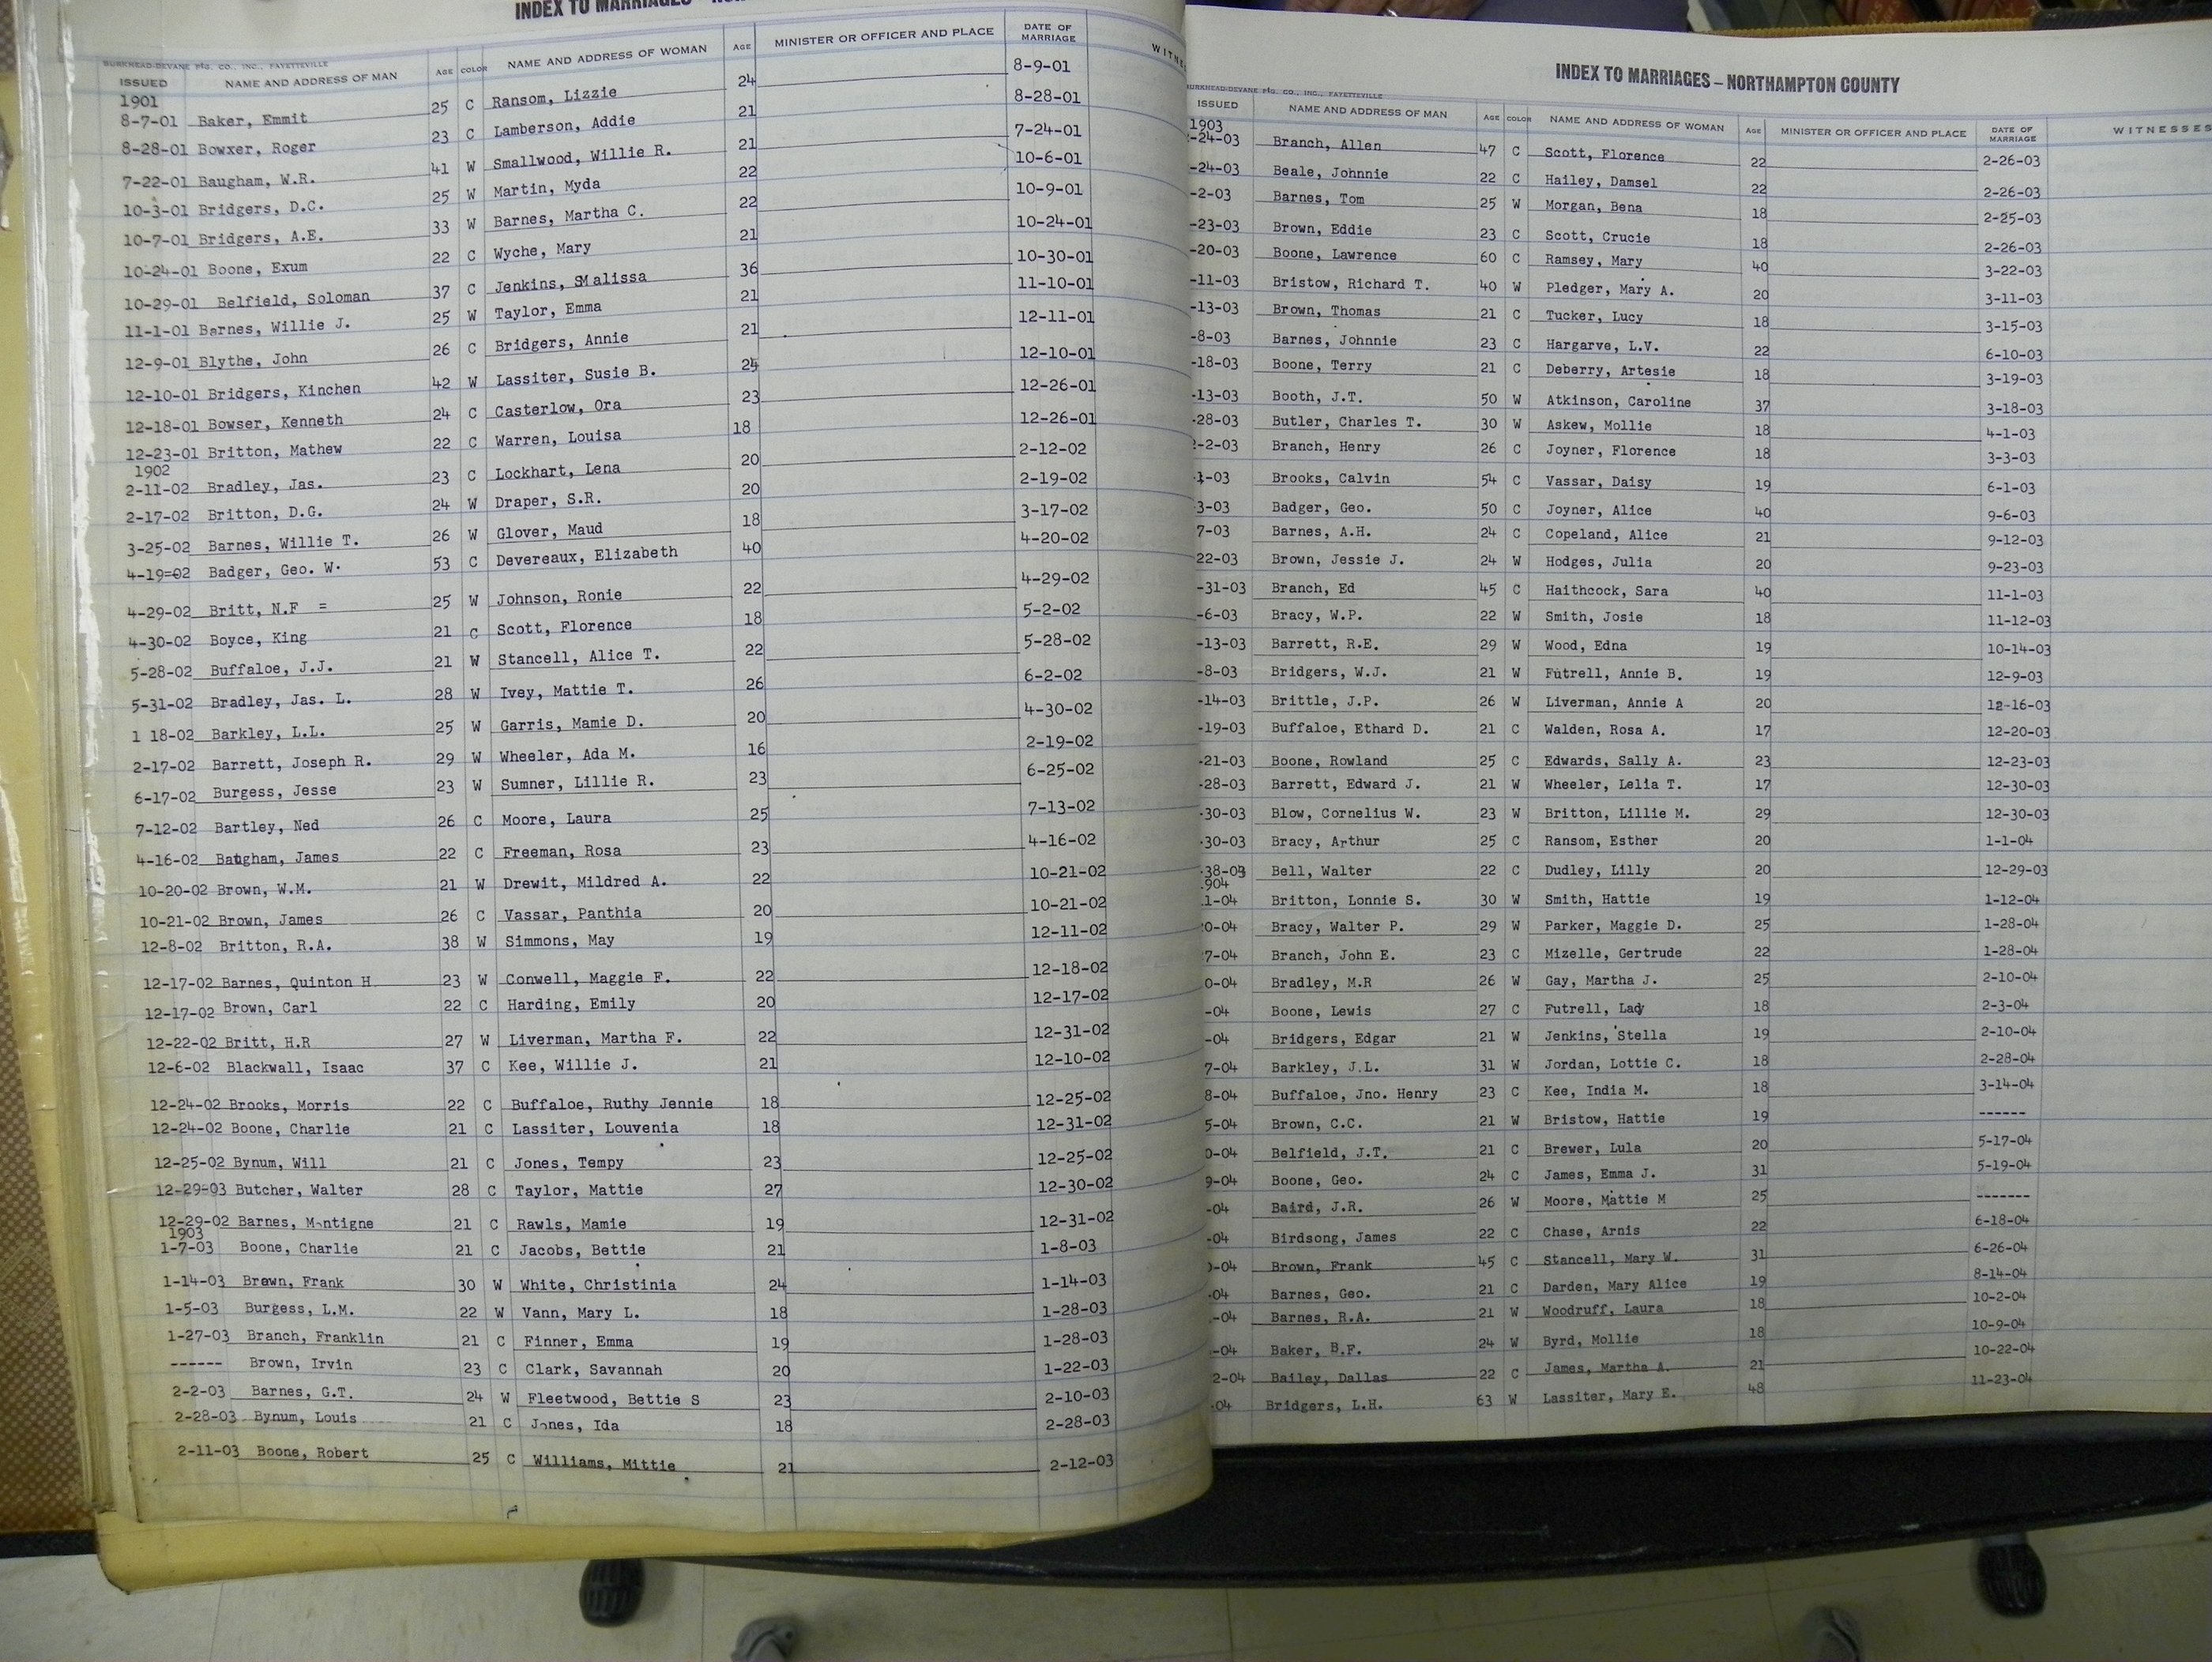 INDEX TO MARRIAGES
BURKHEAD-DEVANE P'f'g. CO., INC., FAYETTEVILLE
ISSUED NAME AND ADDRESS OF MAN AGE COLOR NAME AND ADDRESS OF WOMAN AGE MINISTER OR OFFICER AND PLACE DATE OF MARRIAGE
1901
8-7-01 Baker, Emmit 25 C Ransom, Lizzie 24 8-9-01
8-28-01 Bowxer, Roger 23 C Lamberson, Addie 21 8-28-01
7-22-01 Baugham, W.R. 41 W Smallwood, Willie R. 21 7-24-01
10-3-01 Bridgers, D.C. 25 W Martin, Myda 22 10-6-01
10-7-01 Bridgers, A.E. 33 W Barnes, Martha C. 22 10-9-01
10-24-01 Boone, Exum 22 C Wyche, Mary 21 10-24-01
10-29-01 Belfield, Soloman 37 C Jenkins, Malissa 36 10-30-01
11-1-01 Barnes, Willie J. 25 W Taylor, Emma 21 11-10-01
12-9-01 Blythe, John 26 C Bridgers, Annie 21 12-11-01
12-10-01 Bridgers, Kinchen 42 W Lassiter, Susie B. 12-10-01
12-18-01 Bowser, Kenneth 24 C Casterlow, Ora 23 12-26-01
12-23-01 Britton, Mathew 22 C Warren, Louisa 18 12-26-01
1902
2-11-02 Bradley, Jas. 23 C Lockhart, Lena 20 2-12-02
2-17-02 Britton, D.G. 24 W Draper, S.R. 20 2-19-02
3-25-02 Barnes, Willie T. 26 W Glover, Maud 18 3-17-02
4-19=02 Badger, Geo. W. 53 C Devereaux, Elizabeth 40 4-20-02
4-29-02 Britt, N.F = 25 W Johnson, Ronie 22 4-29-02
4-30-02 Boyce, King 21 C Scott, Florence 18 5-2-02
5-28-02 Buffaloe, J.J. 21 W Stancell, Alice T. 22 5-28-02
5-31-02 Bradley, Jas. L. 28 W Ivey, Mattie T. 26 6-2-02
1 18-02 Barkley, L.L. 25 W Garris, Mamie D. 20 4-30-02
2-17-02 Barrett, Joseph R. 29 W Wheeler, Ada M. 16 2-19-02
6-17-02 Burgess, Jesse 23 W Sumner, Lillie R. 23 6-25-02
7-12-02 Bartley, Ned 26 C Moore, Laura 25 7-13-02
4-16-02 Baugham, James 22 C Freeman, Rosa 23 4-16-02
10-20-02 Brown, W.M. 21 W Drewit, Mildred A. 22 10-21-02
10-21-02 Brown, James 26 C Vassar, Panthia 20 10-21-02
12-8-02 Britton, R.A. 38 W Simmons, May 19 12-11-02
12-17-02 Barnes, Quinton H 23 W Conwell, Maggie F. 22 12-18-02
12-17-02 Brown, Carl 22 C Harding, Emily 20 12-17-02
12-22-02 Britt, H.R 27 W Liverman, Martha F. 22 12-31-02
12-6-02 Blackwall, Isaac 37 C Kee, Willie J. 21 12-10-02
12-24-02 Brooks, Morris 22 C Buffaloe, Ruthy Jennie 18 12-25-02
12-24-02 Boone, Charlie 21 C Lassiter, Louvenia 18 12-31-02
12-25-02 Bynum, Will 21 C Jones, Tempy 23 12-25-02
12-29-03 Butcher, Walter 28 C Taylor, Mattie 27 12-30-02
12-29-02 Barnes, Montigne 21 C Rawls, Mamie 19 12-31-02
1903
1-7-03 Boone, Charlie 21 C Jacobs, Bettie 21 1-8-03
1-14-03 Brown, Frank 30 W White, Christinia 24 1-14-03
1-5-03 Burgess, L.M. 22 W Vann, Mary L. 18 1-28-03
1-27-03 Branch, Franklin 21 C Finner, Emma 19 1-28-03
------ Brown, Irvin 23 C Clark, Savannah 20 1-22-03
2-2-03 Barnes, G.T. 24 W Fleetwood, Bettie S 23 2-10-03
2-28-03 Bynum, Louis 21 C Jones, Ida 18 2-28-03
2-11-03 Boone, Robert 25 C Williams, Mittie 21 2-12-03
INDEX TO MARRIAGES – NORTHAMPTON COUNTY
BURKHEAD-DEVANE P'f'g. CO., INC., FAYETTEVILLE
ISSUED NAME AND ADDRESS OF MAN AGE COLOR NAME AND ADDRESS OF WOMAN AGE MINISTER OR OFFICER AND PLACE DATE OF MARRIAGE WITNESSES
1903
-24-03 Branch, Allen 47 C Scott, Florence 22 2-26-03
-24-03 Beale, Johnnie 22 C Hailey, Damsel 22 2-26-03
-2-03 Barnes, Tom 25 W Morgan, Bena 18 2-25-03
-23-03 Brown, Eddie 23 C Scott, Crucie 18 2-26-03
-20-03 Boone, Lawrence 60 C Ramsey, Mary 40 3-22-03
-11-03 Bristow, Richard T. 40 W Pledger, Mary A. 20 3-11-03
-13-03 Brown, Thomas 21 C Tucker, Lucy 18 3-15-03
-8-03 Barnes, Johnnie 23 C Hargarve, L.V. 22 6-10-03
-18-03 Boone, Terry 21 C Deberry, Artesie 18 3-19-03
-13-03 Booth, J.T. 50 W Atkinson, Caroline 37 3-18-03
-28-03 Butler, Charles T. 30 W Askew, Mollie 18 4-1-03
-2-03 Branch, Henry 26 C Joyner, Florence 18 3-3-03
-03 Brooks, Calvin 54 C Vassar, Daisy 19 6-1-03
3-03 Badger, Geo. 50 C Joyner, Alice 40 9-6-03
7-03 Barnes, A.H. 24 C Copeland, Alice 21 9-12-03
22-03 Brown, Jessie J. 24 W Hodges, Julia 20 9-23-03
-31-03 Branch, Ed 45 C Haithcock, Sara 40 11-1-03
-6-03 Bracy, W.P. 22 W Smith, Josie 18 11-12-03
-13-03 Barrett, R.E. 29 W Wood, Edna 19 10-14-03
-8-03 Bridgers, W.J. 21 W Futrell, Annie B. 19 12-9-03
-14-03 Brittle, J.P. 26 W Liverman, Annie A 20 12-16-03
-19-03 Buffaloe, Ethard D. 21 C Walden, Rosa A. 17 12-20-03
-21-03 Boone, Rowland 25 C Edwards, Sally A. 23 12-23-03
-28-03 Barrett, Edward J. 21 W Wheeler, Lelia T. 17 12-30-03
-30-03 Blow, Cornelius W. 23 W Britton, Lillie M. 29 12-30-03
-30-03 Bracy, Arthur 25 C Ransom, Esther 20 1-1-04
-38-03 Bell, Walter 22 C Dudley, Lilly 20 12-29-03
904
1-04 Britton, Lonnie S. 30 W Smith, Hattie 19 1-12-04
0-04 Bracy, Walter P. 29 W Parker, Maggie D. 25 1-28-04
7-04 Branch, John E. 23 C Mizelle, Gertrude 22 1-28-04
0-04 Bradley, M.R 26 W Gay, Martha J. 25 2-10-04
-04 Boone, Lewis 27 C Futrell, Lady 18 2-3-04
-04 Bridgers, Edgar 21 W Jenkins, Stella 19 2-10-04
7-04 Barkley, J.L. 31 W Jordan, Lottie C. 18 2-28-04
8-04 Buffaloe, Jno. Henry 23 C Kee, India M. 18 3-14-04
5-04 Brown, C.C. 21 W Bristow, Hattie 19 ------
0-04 Belfield, J.T. 21 C Brewer, Lula 20 5-17-04
9-04 Boone, Geo. 24 C James, Emma J. 31 5-19-04
-04 Baird, J.R. 26 W Moore, Mattie M 25 -------
-04 Birdsong, James 22 C Chase, Arnis 22 6-18-04
-04 Brown, Frank 45 C Stancell, Mary W. 31 6-26-04
-04 Barnes, Geo. 21 C Darden, Mary Alice 19 8-14-04
-04 Barnes, R.A. 21 W Woodruff, Laura 18 10-2-04
-04 Baker, B.F. 24 W Byrd, Mollie 18 10-9-04
2-04 Bailey, Dallas 22 C James, Martha A. 21 10-22-04
-04 Bridgers, L.H. 63 W Lassiter, Mary E. 48 11-23-04